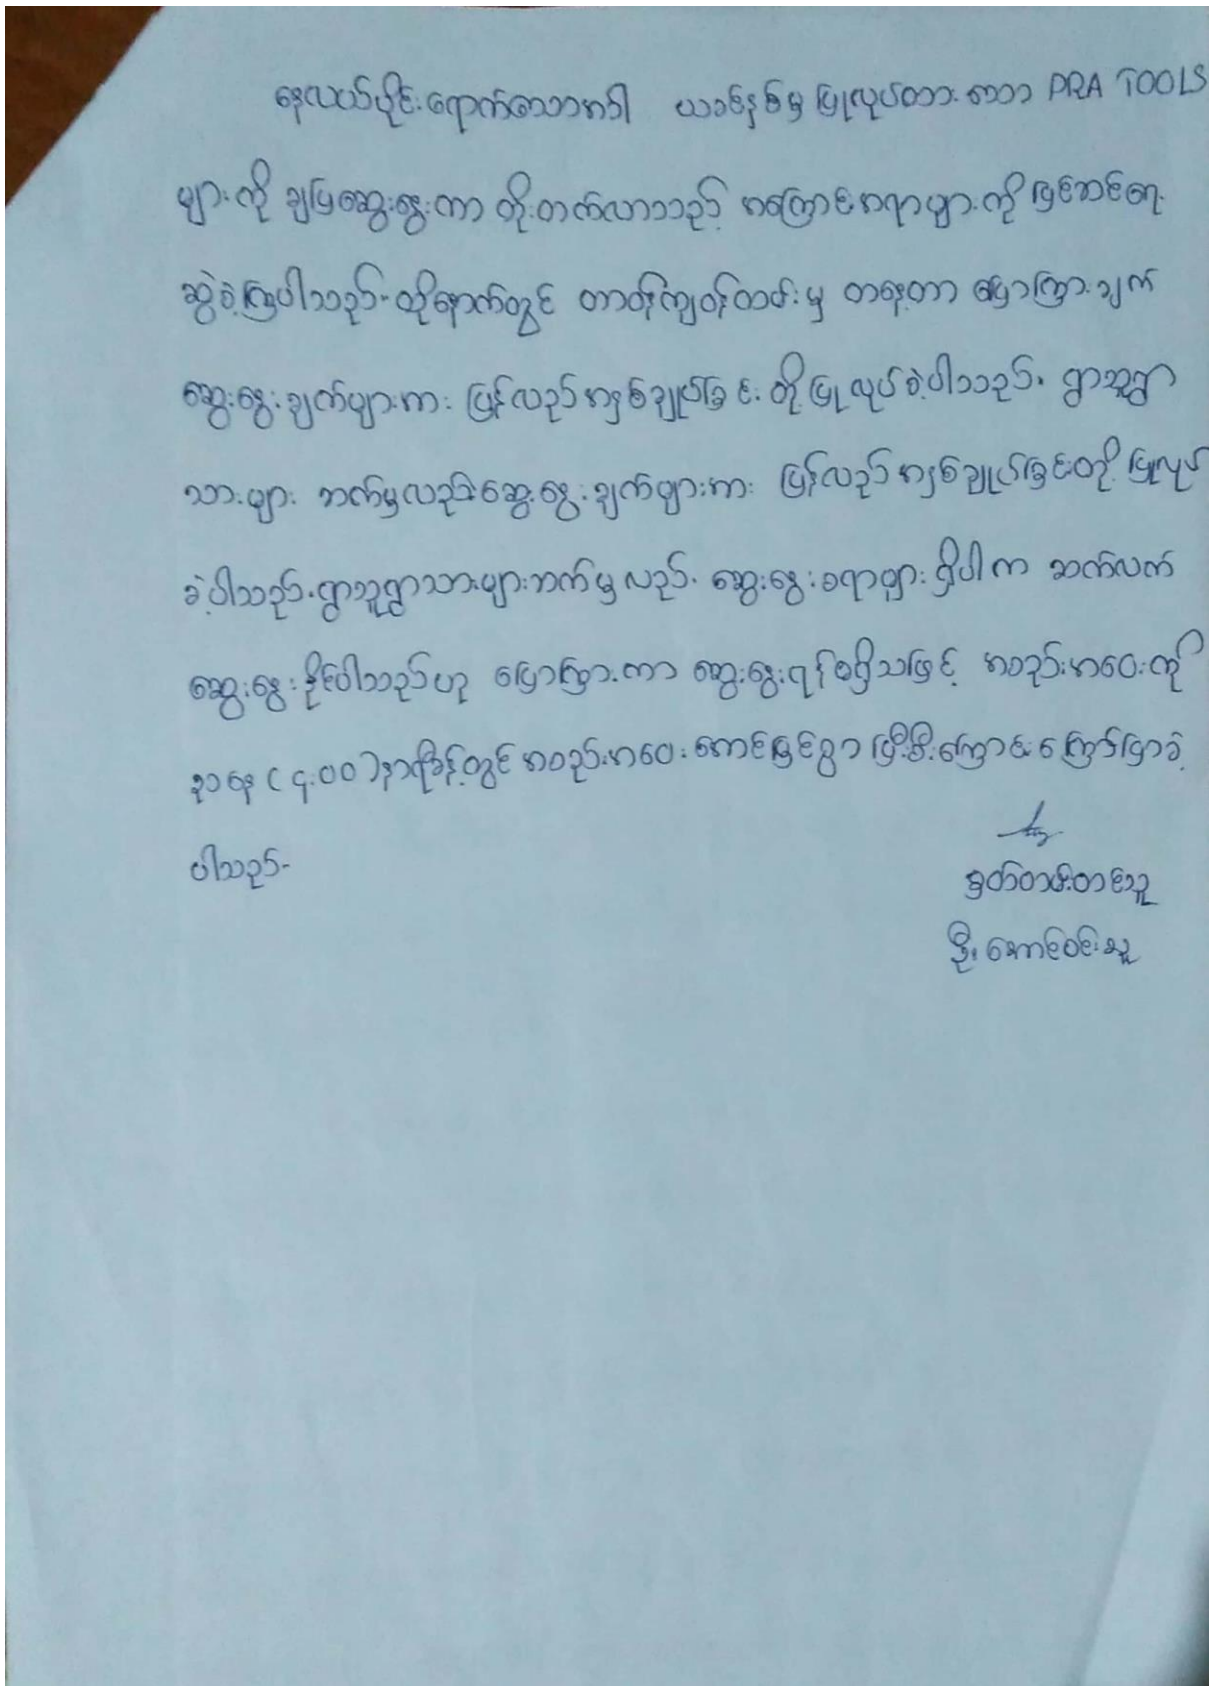 နေ့လယ်ပိုင်းရောက်သောအခါ ယခင်နှစ်မှ ပြုလုပ်ထားသော PRA TOOLS
များကို ချပြဆွေးနွေးကာ တိုးတက်လာသည့် အကြောင်းအရာများကို ပြင်ဆင်ရေး
ဆွဲခဲ့ကြပါသည်။ ထို့နောက်တွင် တာဝန်ကျဝန်ထမ်းမှ တနေ့တာ ပြောကြားချက်
ဆွေးနွေးချက်များအား ပြန်လည်အနှစ်ချုပ်ခြင်းတို့ ပြုလုပ်ခဲ့ပါသည်။ ရွာသူရွာ
သားများ ဘက်မှလည်းဆွေးနွေးချက်များအား ပြန်လည်အနှစ်ချုပ်ခြင်းတို့ ပြုလုပ်
ခဲ့ပါသည်။ ရွာသူရွာသားများဘက်မှ လည်း ဆွေးနွေးစရာများ ရှိပါက ဆက်လက်
ဆွေးနွေးနိုင်ပါသည်ဟု ပြောကြားကာ ဆွေးနွေးရန်မရှိသဖြင့် အစည်းအဝေးကို
ညနေ (၄:၀၀) နာရီခွဲတွင် အစည်းအဝေး အောင်မြင်စွာ ပြီးစီးကြောင်း ကြေညာခဲ့
ပါသည်။
မှတ်တမ်းတင်သူ
ဦးအောင်ဝင်းသူ